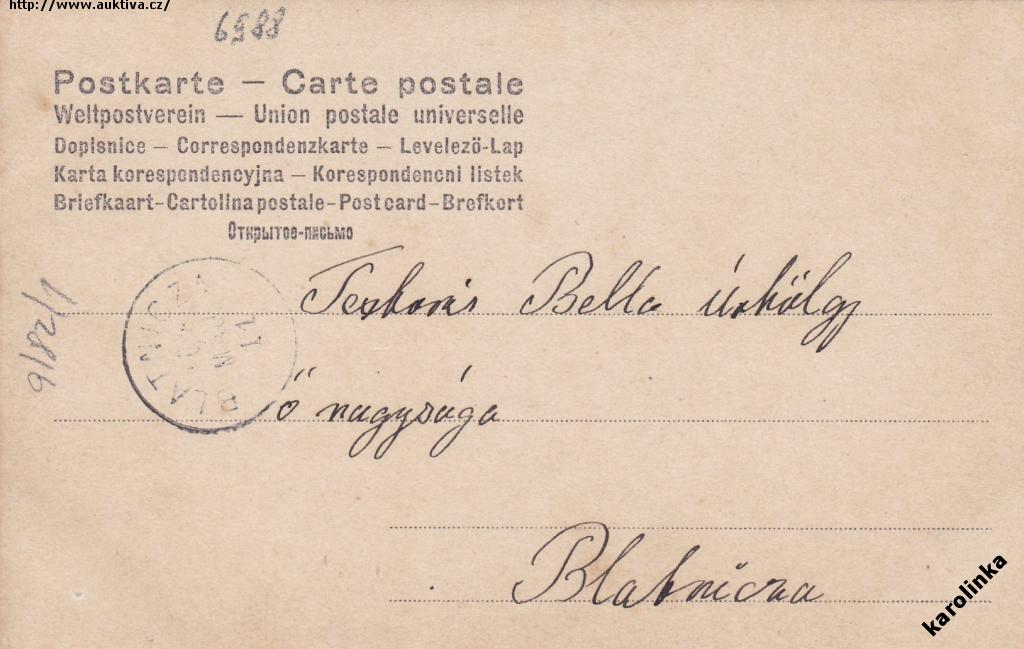 http://www.auktiva.cz/
6988
Postkarte – Carte postale
Weltpostverein — Union postale universelle
Dopisnice – Correspondenzkarte – Levelező-Lap
Karta korespondencyjna – Korespondencni listek
Briefkaart-Cartolina postale-Post card-Brefkort
Открытое-письмо
Bella úrhölgy
BLATNICZA
ő nagysága
Blatnicza
9/82/1
karolinka